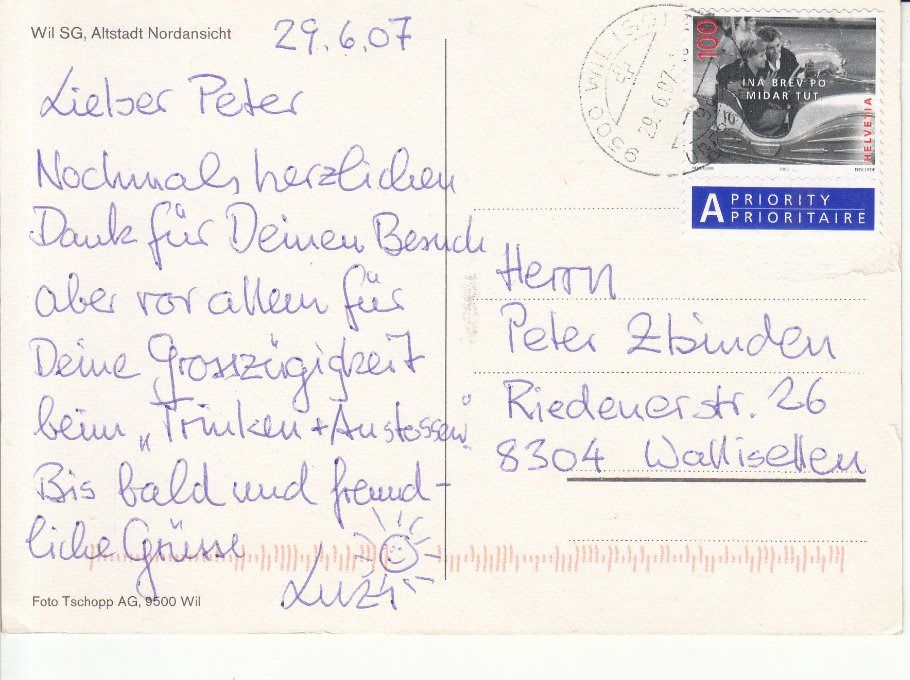 Wil SG, Altstadt Nordansicht
29.6.07
Lieber Peter
Nochmals herzlichen
Dank für Deinen Besuch
aber vor allem für
Deine Grosszügigkeit
beim „Trinken + Anstossen“.
Bis bald und freund-
liche Grüsse
Luzi
Foto Tschopp AG, 9500 Wil
9500 WIL (SG) 1
29.6.07
100
INA BREV PO
MIDAR TUT.
HELVETIA
A PRIORITY
PRIORITAIRE
Herrn
Peter Zbinden
Riedenerstr. 26
8304 Wallisellen